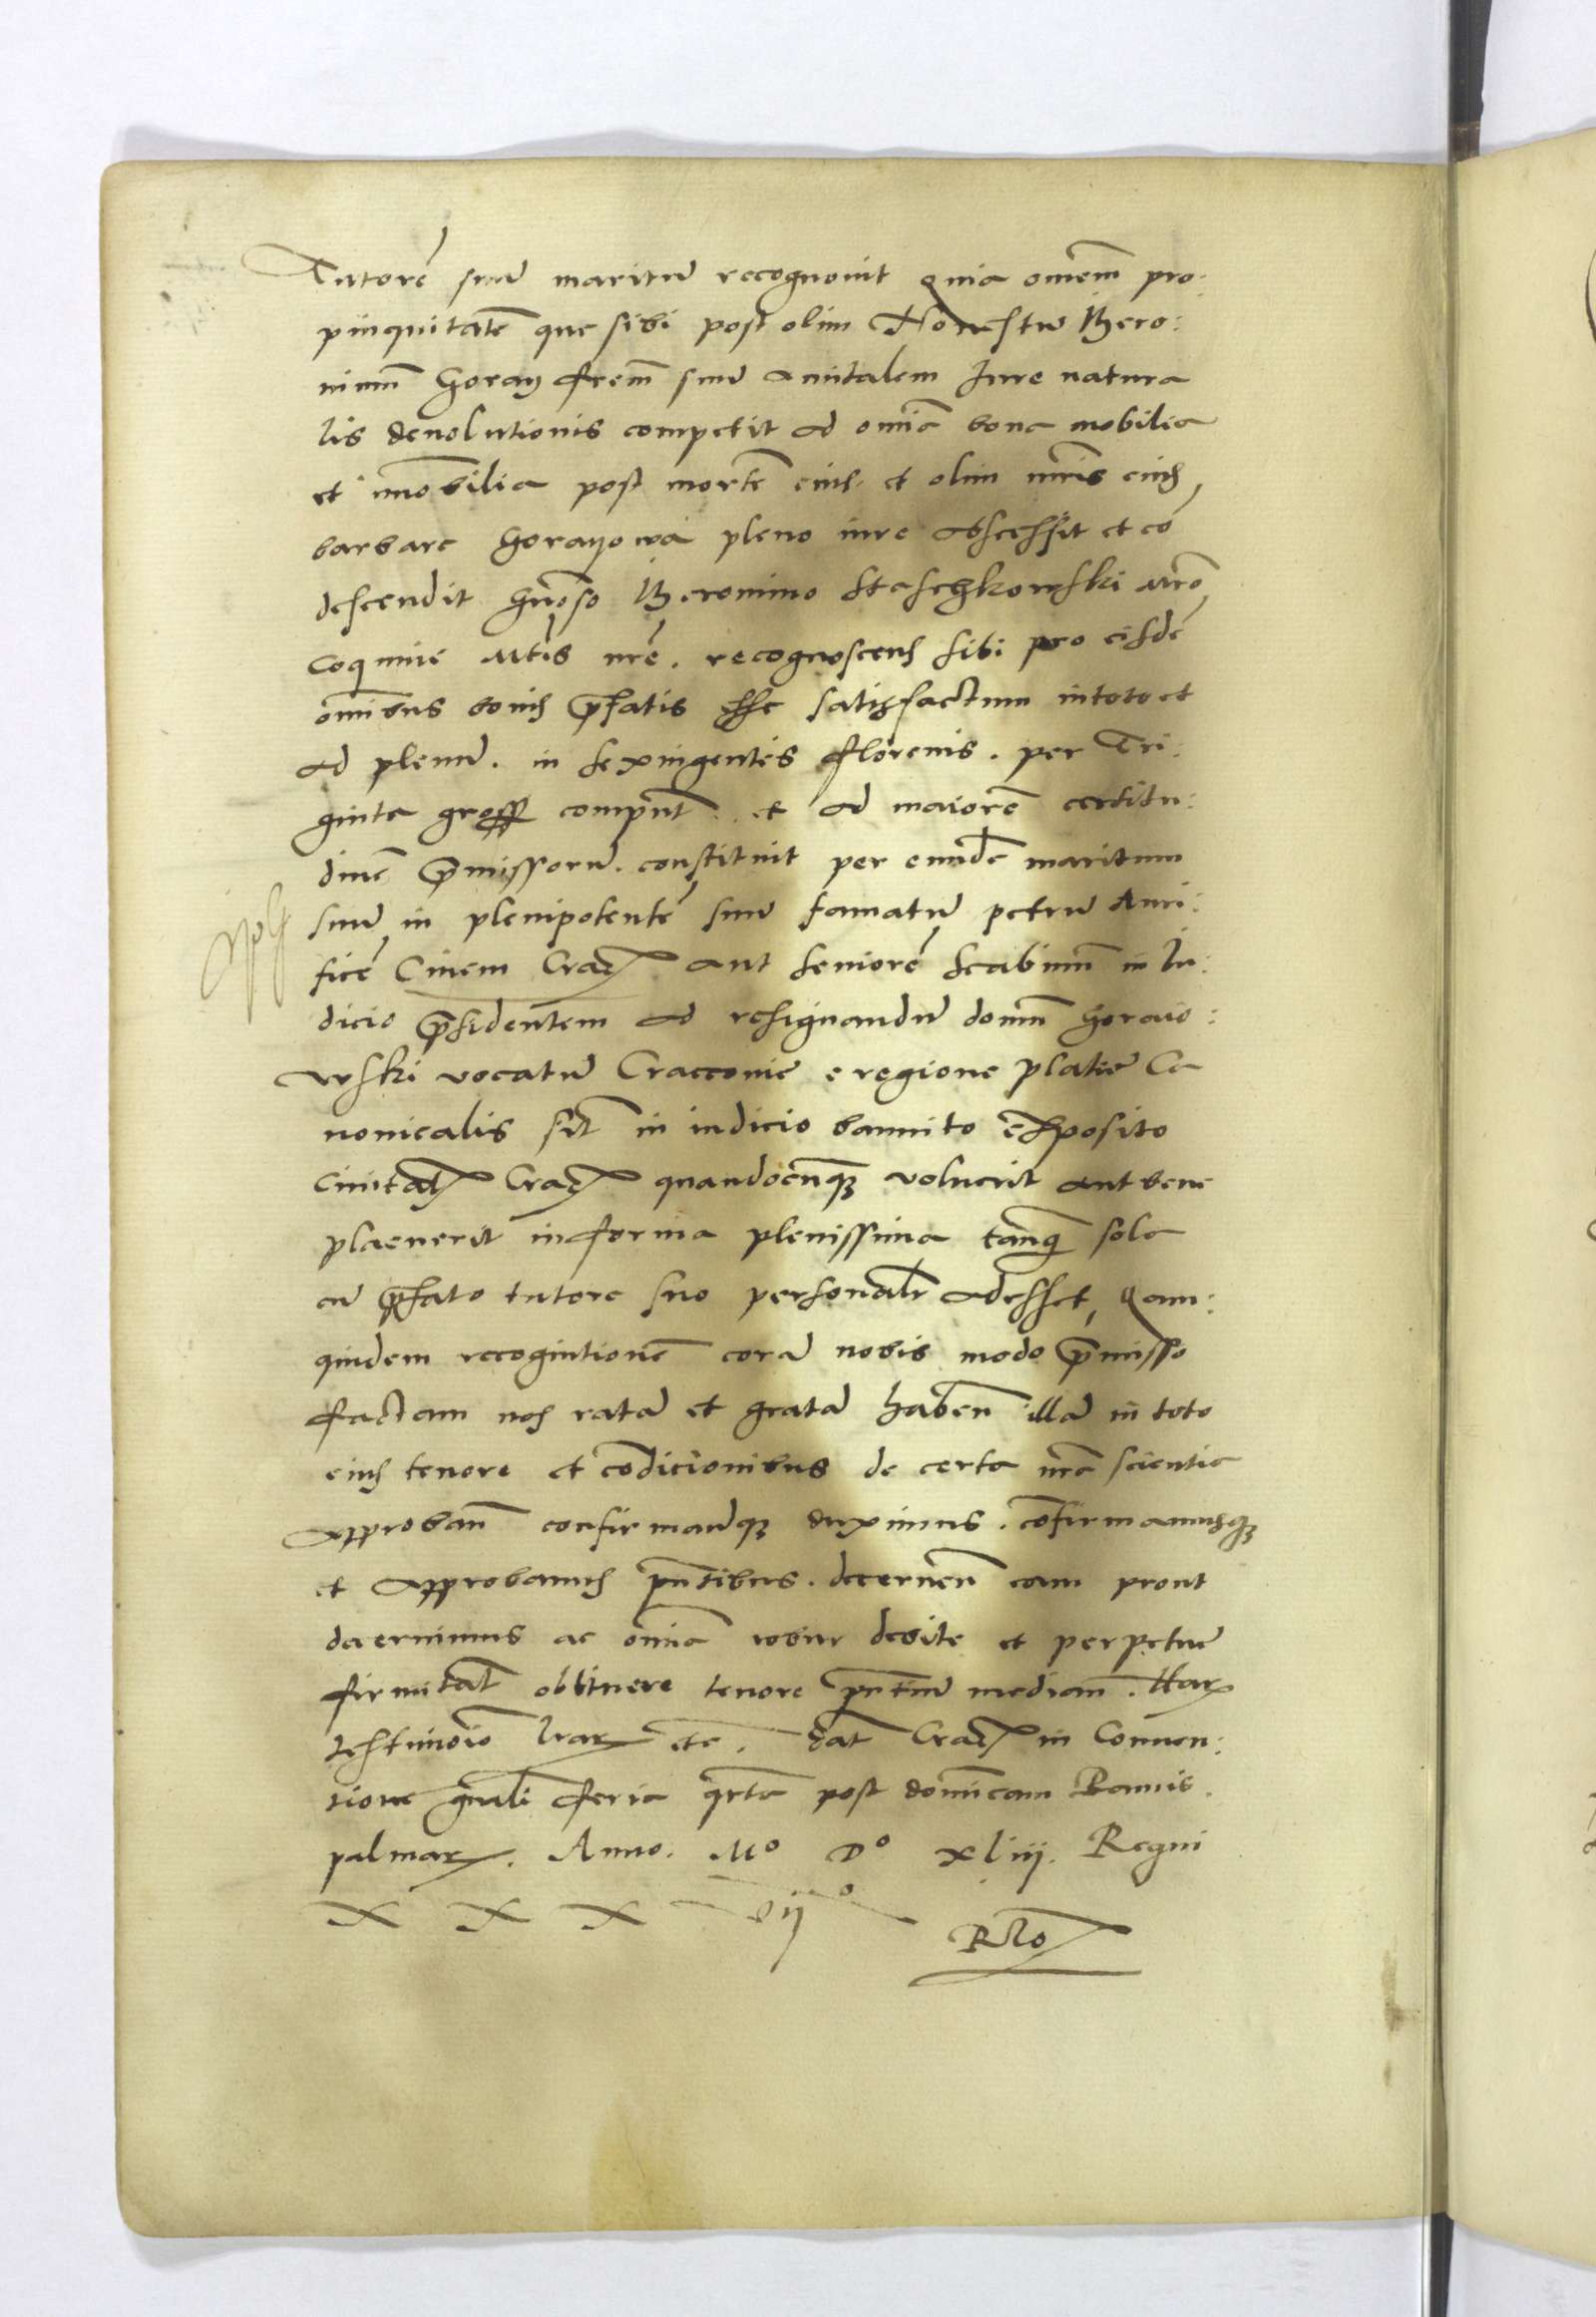 Tutorē suū maritū recognouit Quia omnem̄ pro:
pinquitatē que sibi post olim Honestū Hiero:
nimum̄ Goray frem̄ suū amitalem Jure natura
lis deuolutionis competit ad om̄ia bona mobilia
et im̄obilia post mortē eius et olim mr̄is eius
barbare Gorayowa pleno iure abscessit et cō
descendit Gn̄oso Hieronimo Staschkowski Mr̄o
Coquine Mt̄is nr̄e. recognoscens sibi pro eisdē
om̄ibus bonis p̄fatis esse satisfactum in toto et
ad plenū. in sexingentis florenis. per Tri:
ginta gross comput̄. et ad maiorē certitu:
dinē p̄missorū. constituit per eundē maritum
suū in plenipotentē suū famatū petrū Auri:
ficē Ciuem Crac̄ aut seniorē scabinum̄ in Ju:
dicio p̄sidentem ad resignandū domum̄ Goraio:
wski vocatū Cracouie e regione platee Ca
nonicalis sit̄ in iudicio bannito exposito
Ciuitat̄ Crac̄ quandocunq̄ voluerit aut bene
placuerit in forma plenissima tanq̄ sola
cū p̄fato tutore suo personalr̄ adesset, Quam:
quidem recognitionē corā nobis modo p̄misso
factam nos ratā et gratā haben̄ illā in toto
eius tenore et cōdicionibus de certa nr̄a scientia
approban̄ confirmandq̄ duximus. cōfirmamusq̄
et approbamus pn̄tibus. decernen̄ eam prout
decernimus ac om̄ia robur debite et perpetue
firmitat̄ obtinere tenore pn̄tium median̄. Har
testimoīo lrar̄ etc. Dat̄ Crac̄ in Conuen:
tione gn̄ali feria qr̄ta post dominicam Ramis.
palmar̄. Anno. Mº Dº xliij. Regni
X X X vijº
Rlo